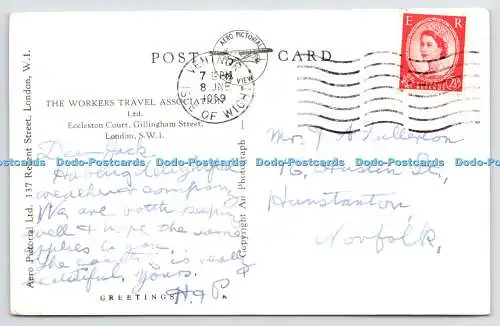 POST CARD
AERO PICTORIAL
VIEW
E R
2½D
POSTAGE REVENUE
VENTNOR
7 PM
8 JNE
1959
ISLE OF WIGHT
THE WORKERS TRAVEL ASSOCIATION
Ltd.
Eccleston Court, Gillingham Street,
London, S.W.1.
Aero Pictorial Ltd. 137 Regent Street, London, W.1.
Copyright Air Photograph
Dear Jack
Having delightful
weather & company
We are both keeping
well & hope the same
applies to you.
the country is really
beautiful. Yours.
H & P.
GREETINGS
Mr. J. A. Fullerton
76, Austin St,
Hunstanton,
Norfolk.
Dodo-Postcards Dodo-Postcards Dodo-Postcards Dodo-Postcards Dodo-Postcards Dodo-Postcards